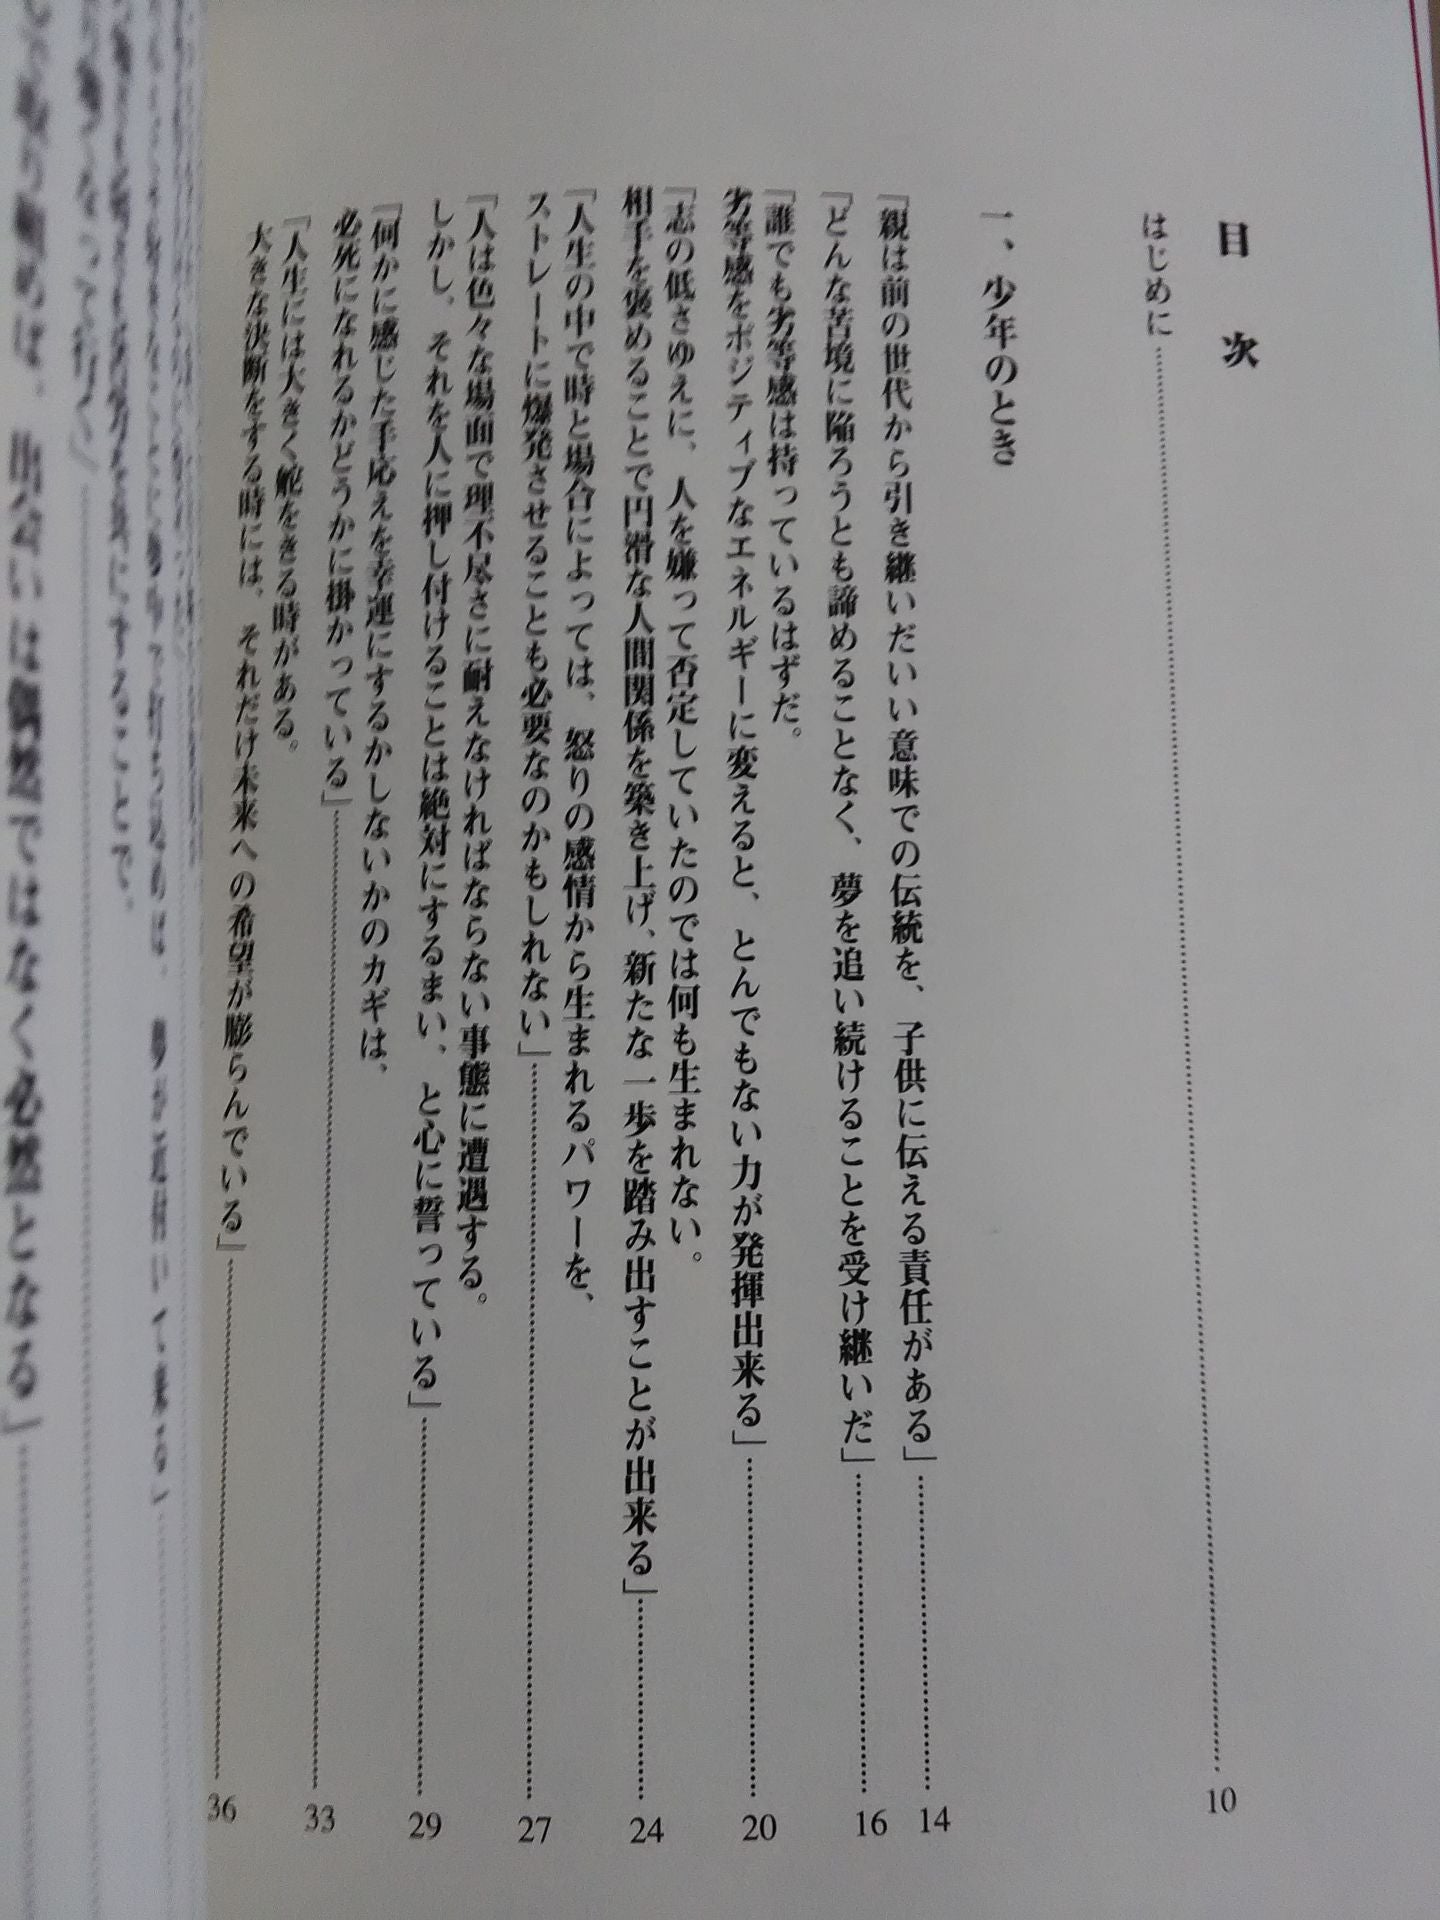 目次
はじめに 10
一、少年のとき
「親は前の世代から引き継いだいい意味での伝統を、子供に伝える責任がある」 14
「どんな苦境に陥ろうとも諦めることなく、夢を追い続けることを受け継いだ」 16
「誰でも劣等感は持っているはずだ。
劣等感をポジティブなエネルギーに変えると、とんでもない力が発揮出来る」 20
「志の低さゆえに、人を嫌って否定していたのでは何も生まれない。
相手を褒めることで円滑な人間関係を築き上げ、新たな一歩を踏み出すことが出来る」 24
「人生の中で時と場合によっては、怒りの感情から生まれるパワーを、
ストレートに爆発させることも必要なのかもしれない」 27
「人は色々な場面で理不尽さに耐えなければならない事態に遭遇する。
しかし、それを人に押し付けることは絶対にするまい、と心に誓っている」 29
「何かに感じた手応えを幸運にするかしないかのカギは、
必死になれるかどうかに掛かっている」 33
「人生には大きく舵をきる時がある。
大きな決断をする時には、それだけ未来への希望が膨らんでいる」 36
は、夢が近付いて来る」
にすることで、
なって行く」
は、出会いは偶然ではなく必然となる」